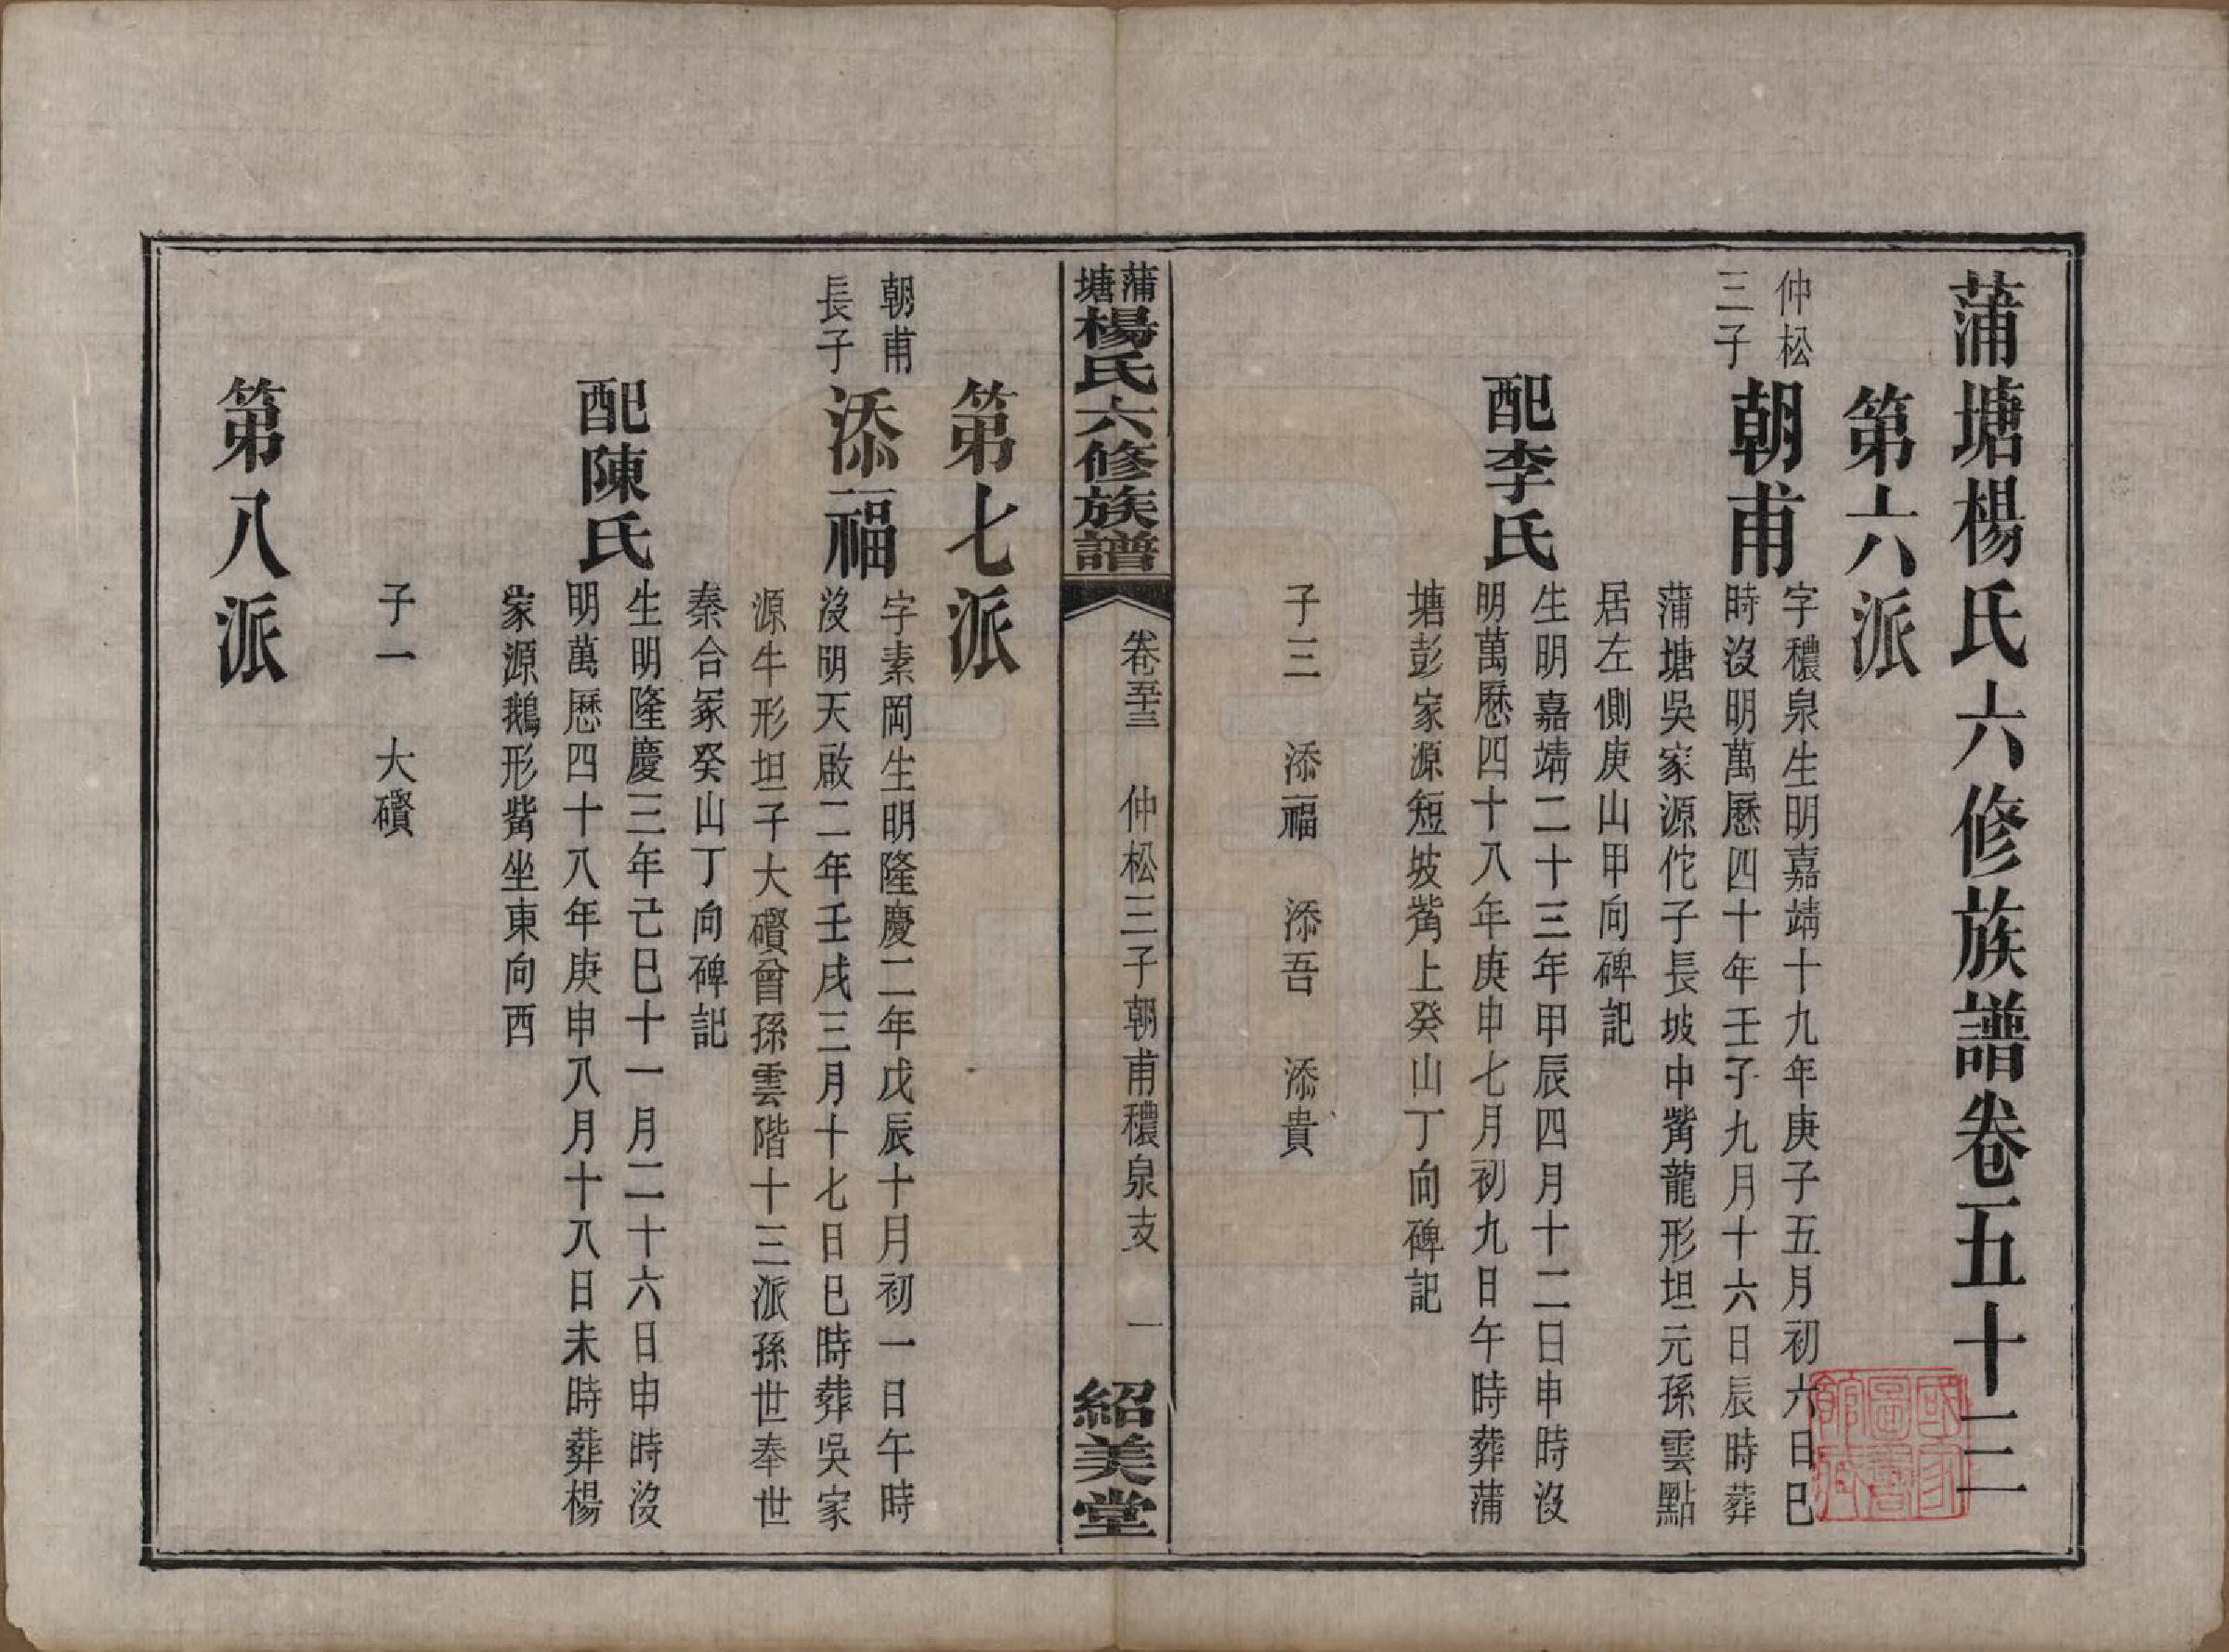 蒲塘楊氏六修族譜卷五十三
第六派
仲松
三子
朝甫
字穠泉生明嘉靖十九年庚子五月初六日巳
時沒明萬歷四十年壬子九月十六日辰時葬
蒲塘吳家源佗子長坡中觜龍形坦元孫雲點
居左側庚山甲向碑記
配李氏
生明嘉靖二十三年甲辰四月十二日申時沒
明萬歷四十八年庚申七月初九日午時葬蒲
塘彭家源短坡觜上癸山丁向碑記
子三 添福 添吾 添貴
蒲塘楊氏六修族譜
卷五十三 仲松三子朝甫穠泉支 一
紹美堂
第七派
朝甫
長子
添福
字素岡生明隆慶二年戊辰十月初一日午時
沒明天啟二年壬戌三月十七日巳時葬吳家
源牛形坦子大礥曾孫雲階十三派孫世奉世
秦合冢癸山丁向碑記
配陳氏
生明隆慶三年己巳十一月二十六日申時沒
明萬歷四十八年庚申八月十八日未時葬楊
家源鵝形觜坐東向西
子一 大礥
第八派
國家圖書館藏